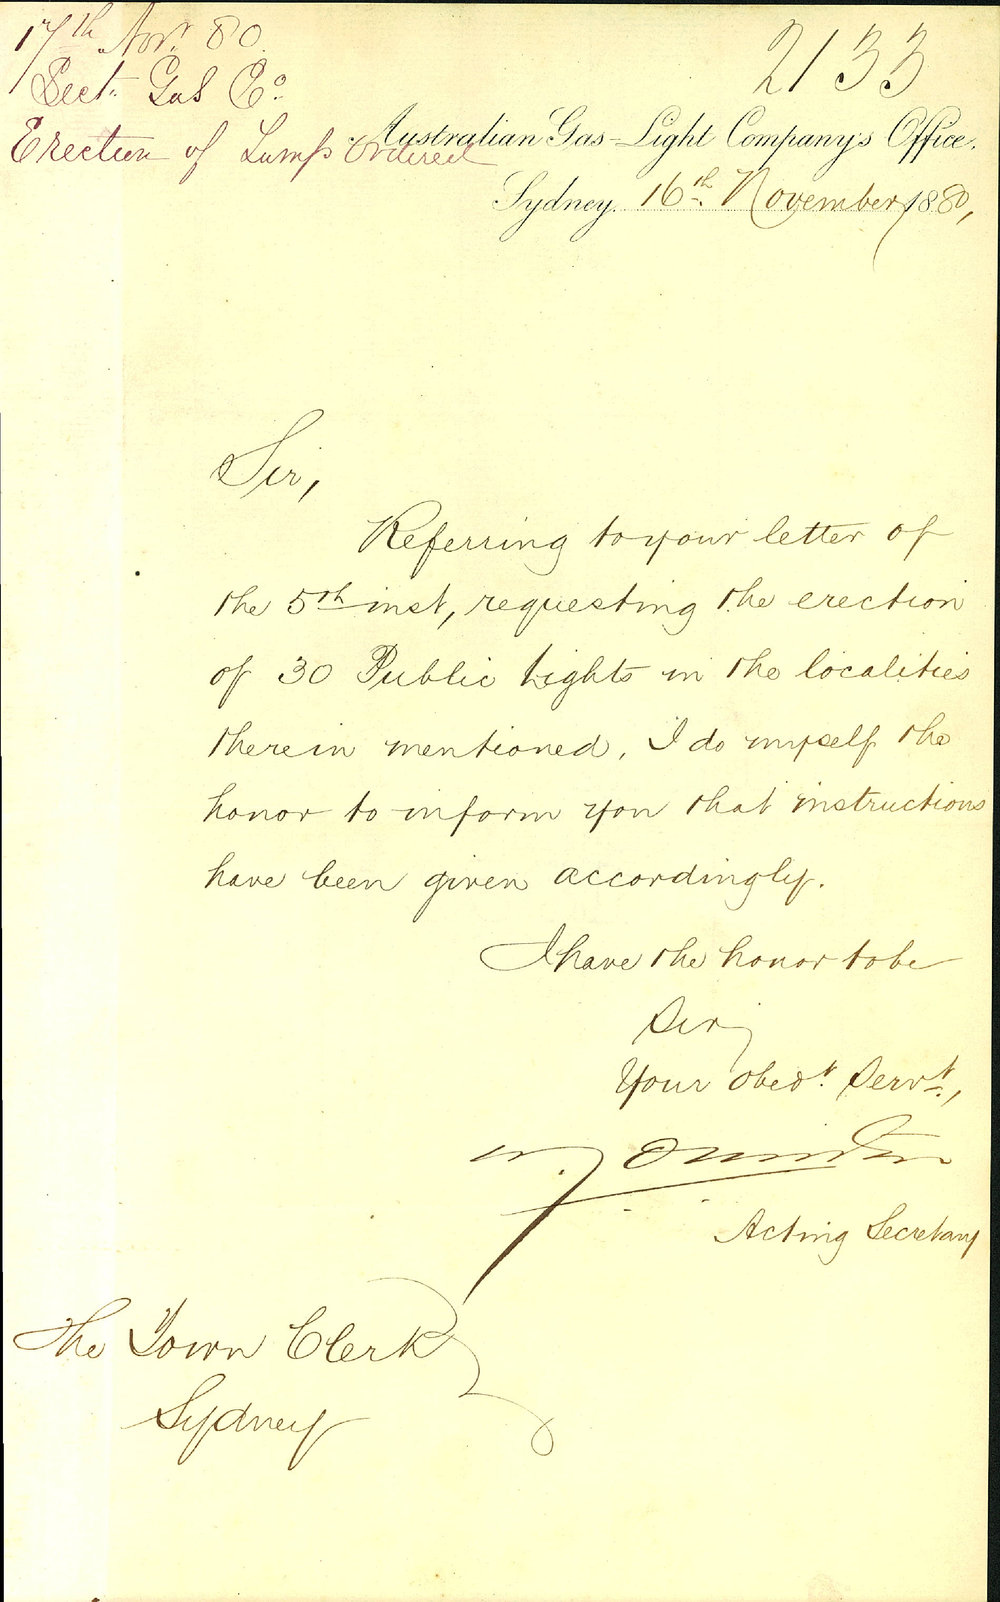 17th Novr. 80.
2133
Sect. Gas Co.
Erection of Lamps Ordered
Australian Gas-Light Company's Office.
Sydney. 16th. November 1880,
Sir,
Referring to your letter of
the 5th inst, requesting the erection
of 30 Public Lights in the localities
therein mentioned, I do myself the
honor to inform you that instructions
have been given accordingly.
I have the honor to be
Sir,
Your Obedt. Servt.,
Acting Secretary
The Town Clerk
Sydney